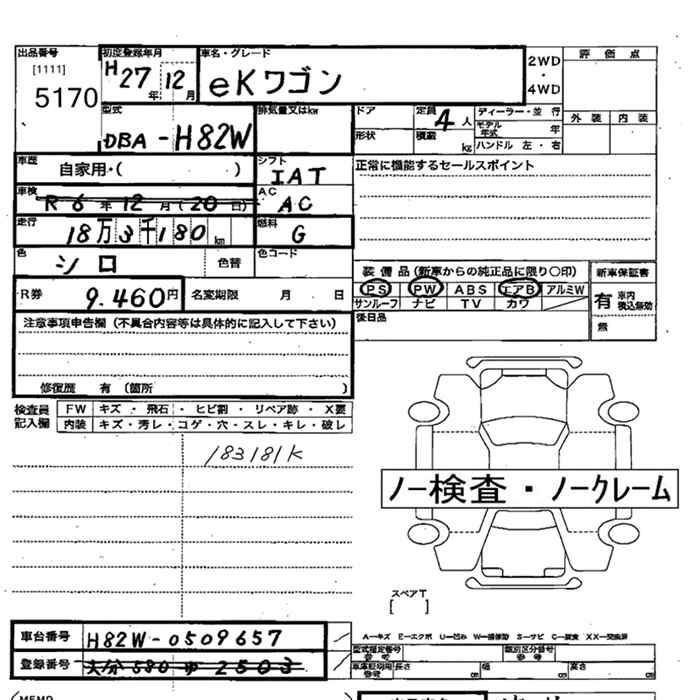 出品番号 初度登録年月 車名・グレード
[1111] H27年 12月 eKワゴン 2WD・4WD 評価点
5170
型式 排気量又はkw ドア 定員 4人 ディーラー・並行 外装 内装
DBA-H82W 形状 積載 kg モデル年式 年
ハンドル 左・右
車歴 自家用・( ) シフト IAT 正常に機能するセールスポイント
車検 R6年12月(20日) AC AC
走行 18万3千180km 燃料 G
色 シロ 色替 色コード
装備品(新車からの純正品に限り○印) 新車保証書
R券 9.460円 名変期限 月 日 PS PW ABS エアB アルミW 有 車内 積込無効
サンルーフ ナビ TV カワ
注意事項申告欄(不具合内容等は具体的に記入して下さい) 後日品 無
修復歴 有(箇所 )
検査員 FW キズ・飛石・ヒビ割・リペア跡・X要
記入欄 内装 キズ・汚レ・コゲ・穴・スレ・キレ・破レ
183181K
ノー検査・ノークレーム
スペアT
[ ]
車台番号 H82W-0509657 A-キズ E-エクボ U-凹み W-補修跡 S-サビ C-腐食 XX-交換済
型式指定番号 参考 類別区分番号 参考
登録番号 大分580ゆ2503 車庫証明用 参考 長さ cm 幅 cm 高さ cm
MEMO